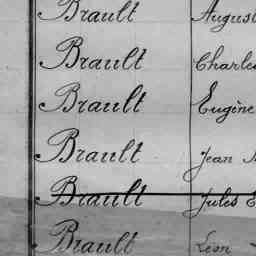 Brault August
Brault Charles
Brault Eugène
Brault Jean
Brault Jules
Brault Léon